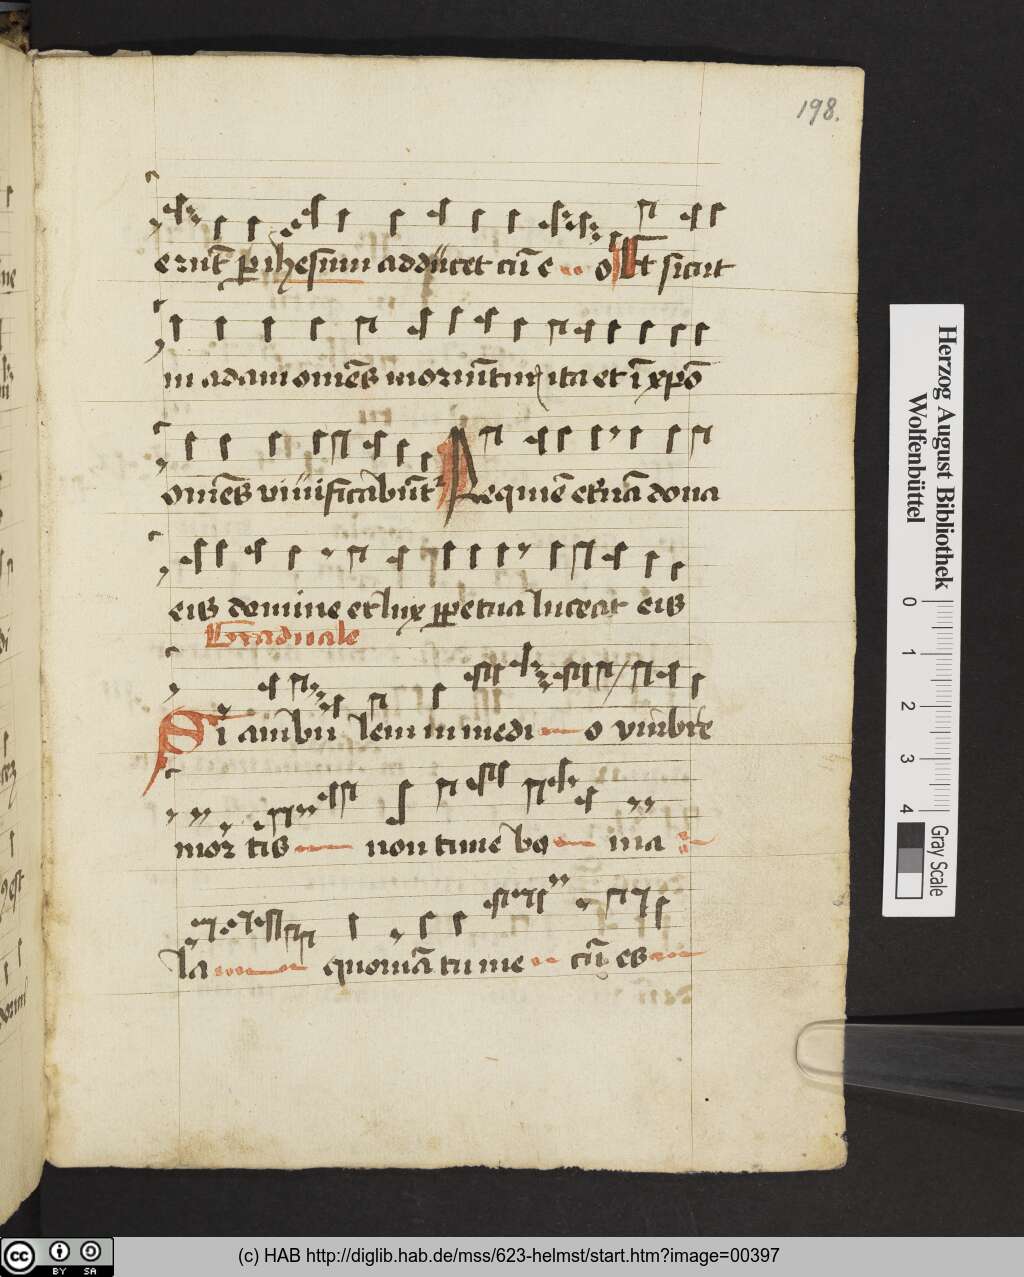 198.
erūt p ihesum adducet cū e o Et sicut
in adam omēs moriūtur ita et ī xpō
omēs vivificabūt Requiē et̄nā dona
eis domine et lux ppetua luceat eis
Graduale
Si ambu lem in medi o vmbre
mor tis non time bo ma
la quoniā tu me cū es
Herzog August Bibliothek
Wolfenbüttel
0 1 2 3 4
Gray Scale
cc BY SA
(c) HAB http://diglib.hab.de/mss/623-helmst/start.htm?image=00397